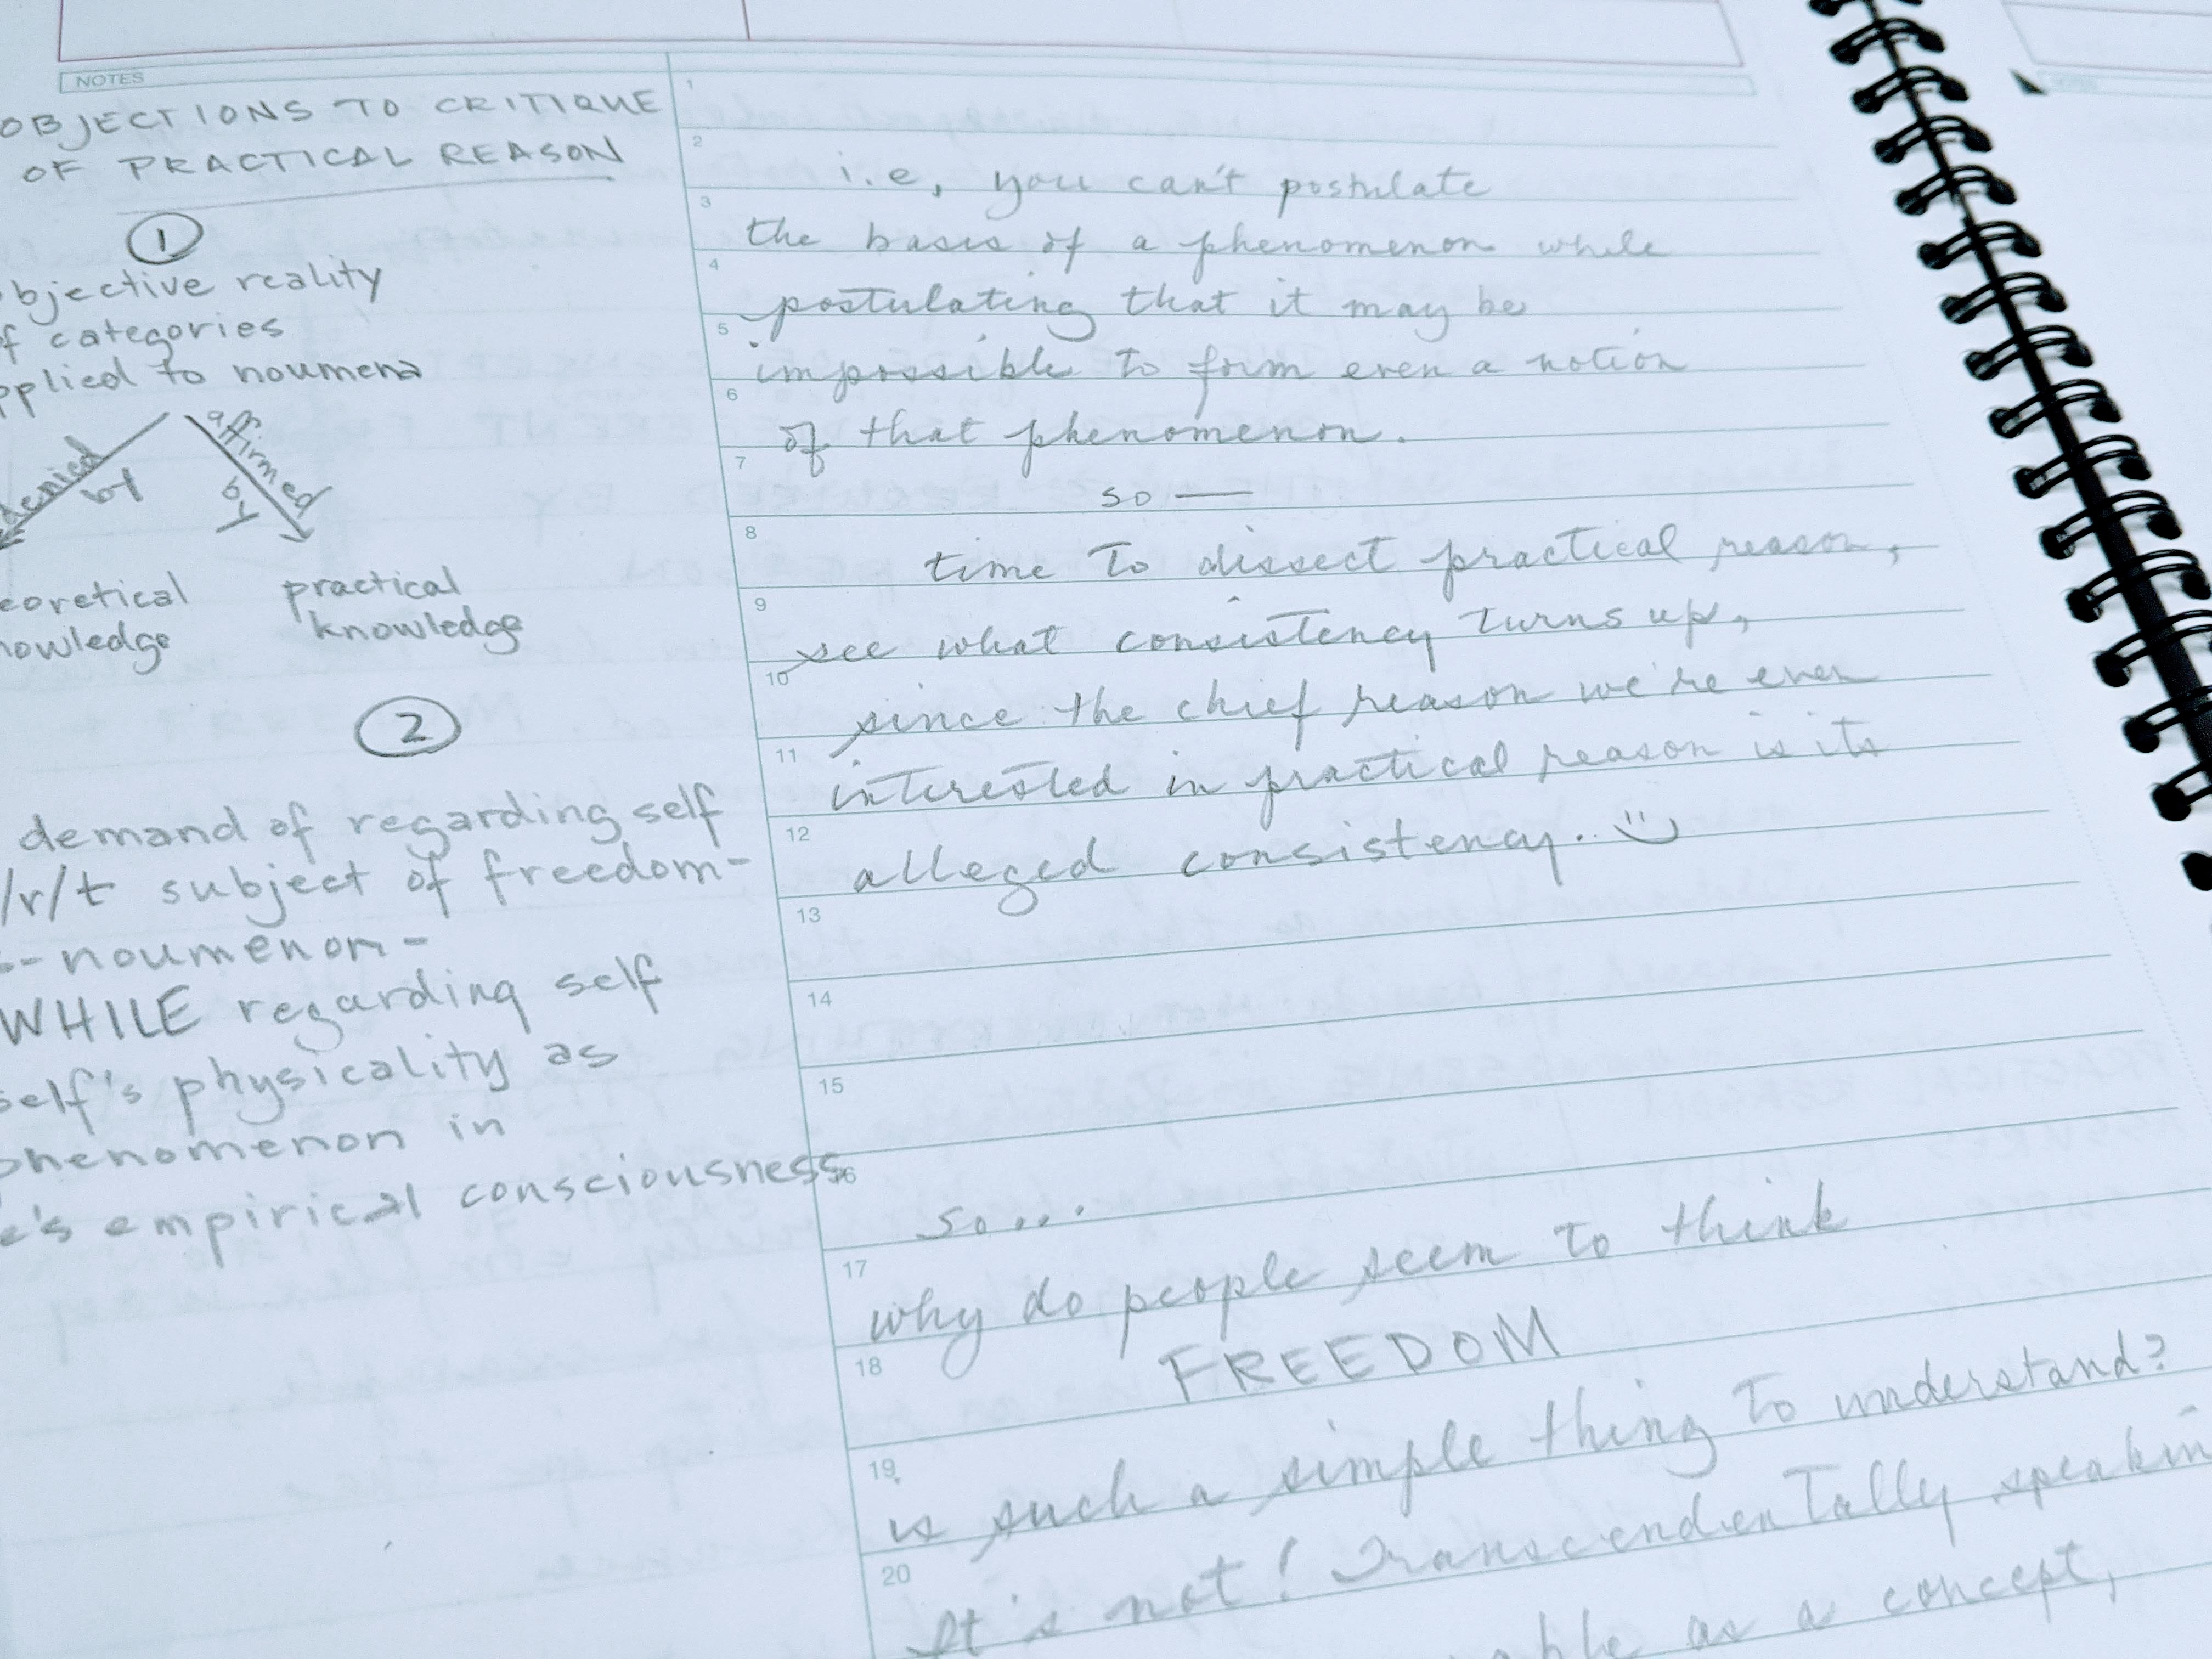 NOTES
OBJECTIONS TO CRITIQUE
OF PRACTICAL REASON
1
bjective reality
f categories
pplied to noumena
denied by
affirmed by
eoretical
nowledge
practical
knowledge
2
demand of regarding self
/r/t subject of freedom-
-noumenon-
WHILE regarding self
self's physicality as
phenomenon in
e's empirical consciousness
1
2
i.e, you can't postulate
3
the basis of a phenomenon while
4
postulating that it may be
5
impossible to form even a notion
6
of that phenomenon.
7
so —
8
time to dissect practical reason,
9
see what consistency turns up,
10
since the chief reason we're even
11
interested in practical reason is its
12
alleged consistency.
13
14
15
16
so...
17
why do people seem to think
18
FREEDOM
19
is such a simple thing to understand?
20
It's not! Transcendentally speakin
able as a concept,